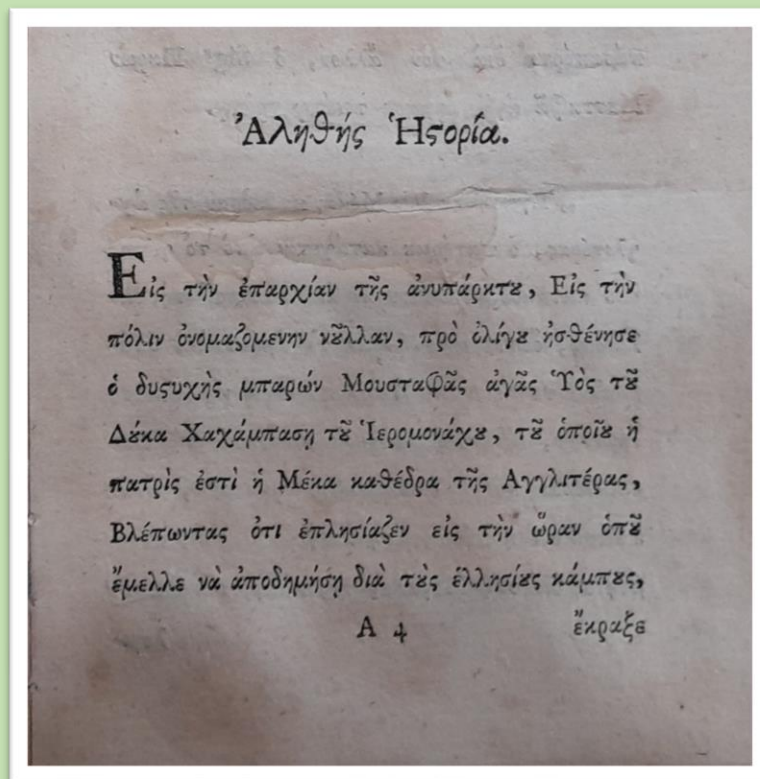 Ἀληθής Ἡϛορία.
Εἰς τὴν ἐπαρχίαν τῆς ἀνυπάρκτȣ, Εἰς τὴν
πόλιν ὀνομαζομενην νȣ͂λλαν, πρὸ ὀλίγȣ ἠσθένησε
ὁ δυϛυχὴς μπαρών Μουσταφᾶς ἀγᾶς Ὑὸς τȣ͂
Δȣ́κα Χαχάμπαση τȣ͂ Ἱερομονάχȣ, τȣ͂ ὁποίȣ ἡ
πατρὶς ἐστὶ ἡ Μέκα καθέδρα τῆς Αγγλιτέρας,
Βλέπωντας ὅτι ἐπλησίαζεν εἰς τὴν ὥραν ὁπȣ͂
ἔμελλε νὰ ἀποδημήσῃ διὰ τȣ̀ς ἑλλησίȣς κάμπȣς,
Α 4 ἔκραξε